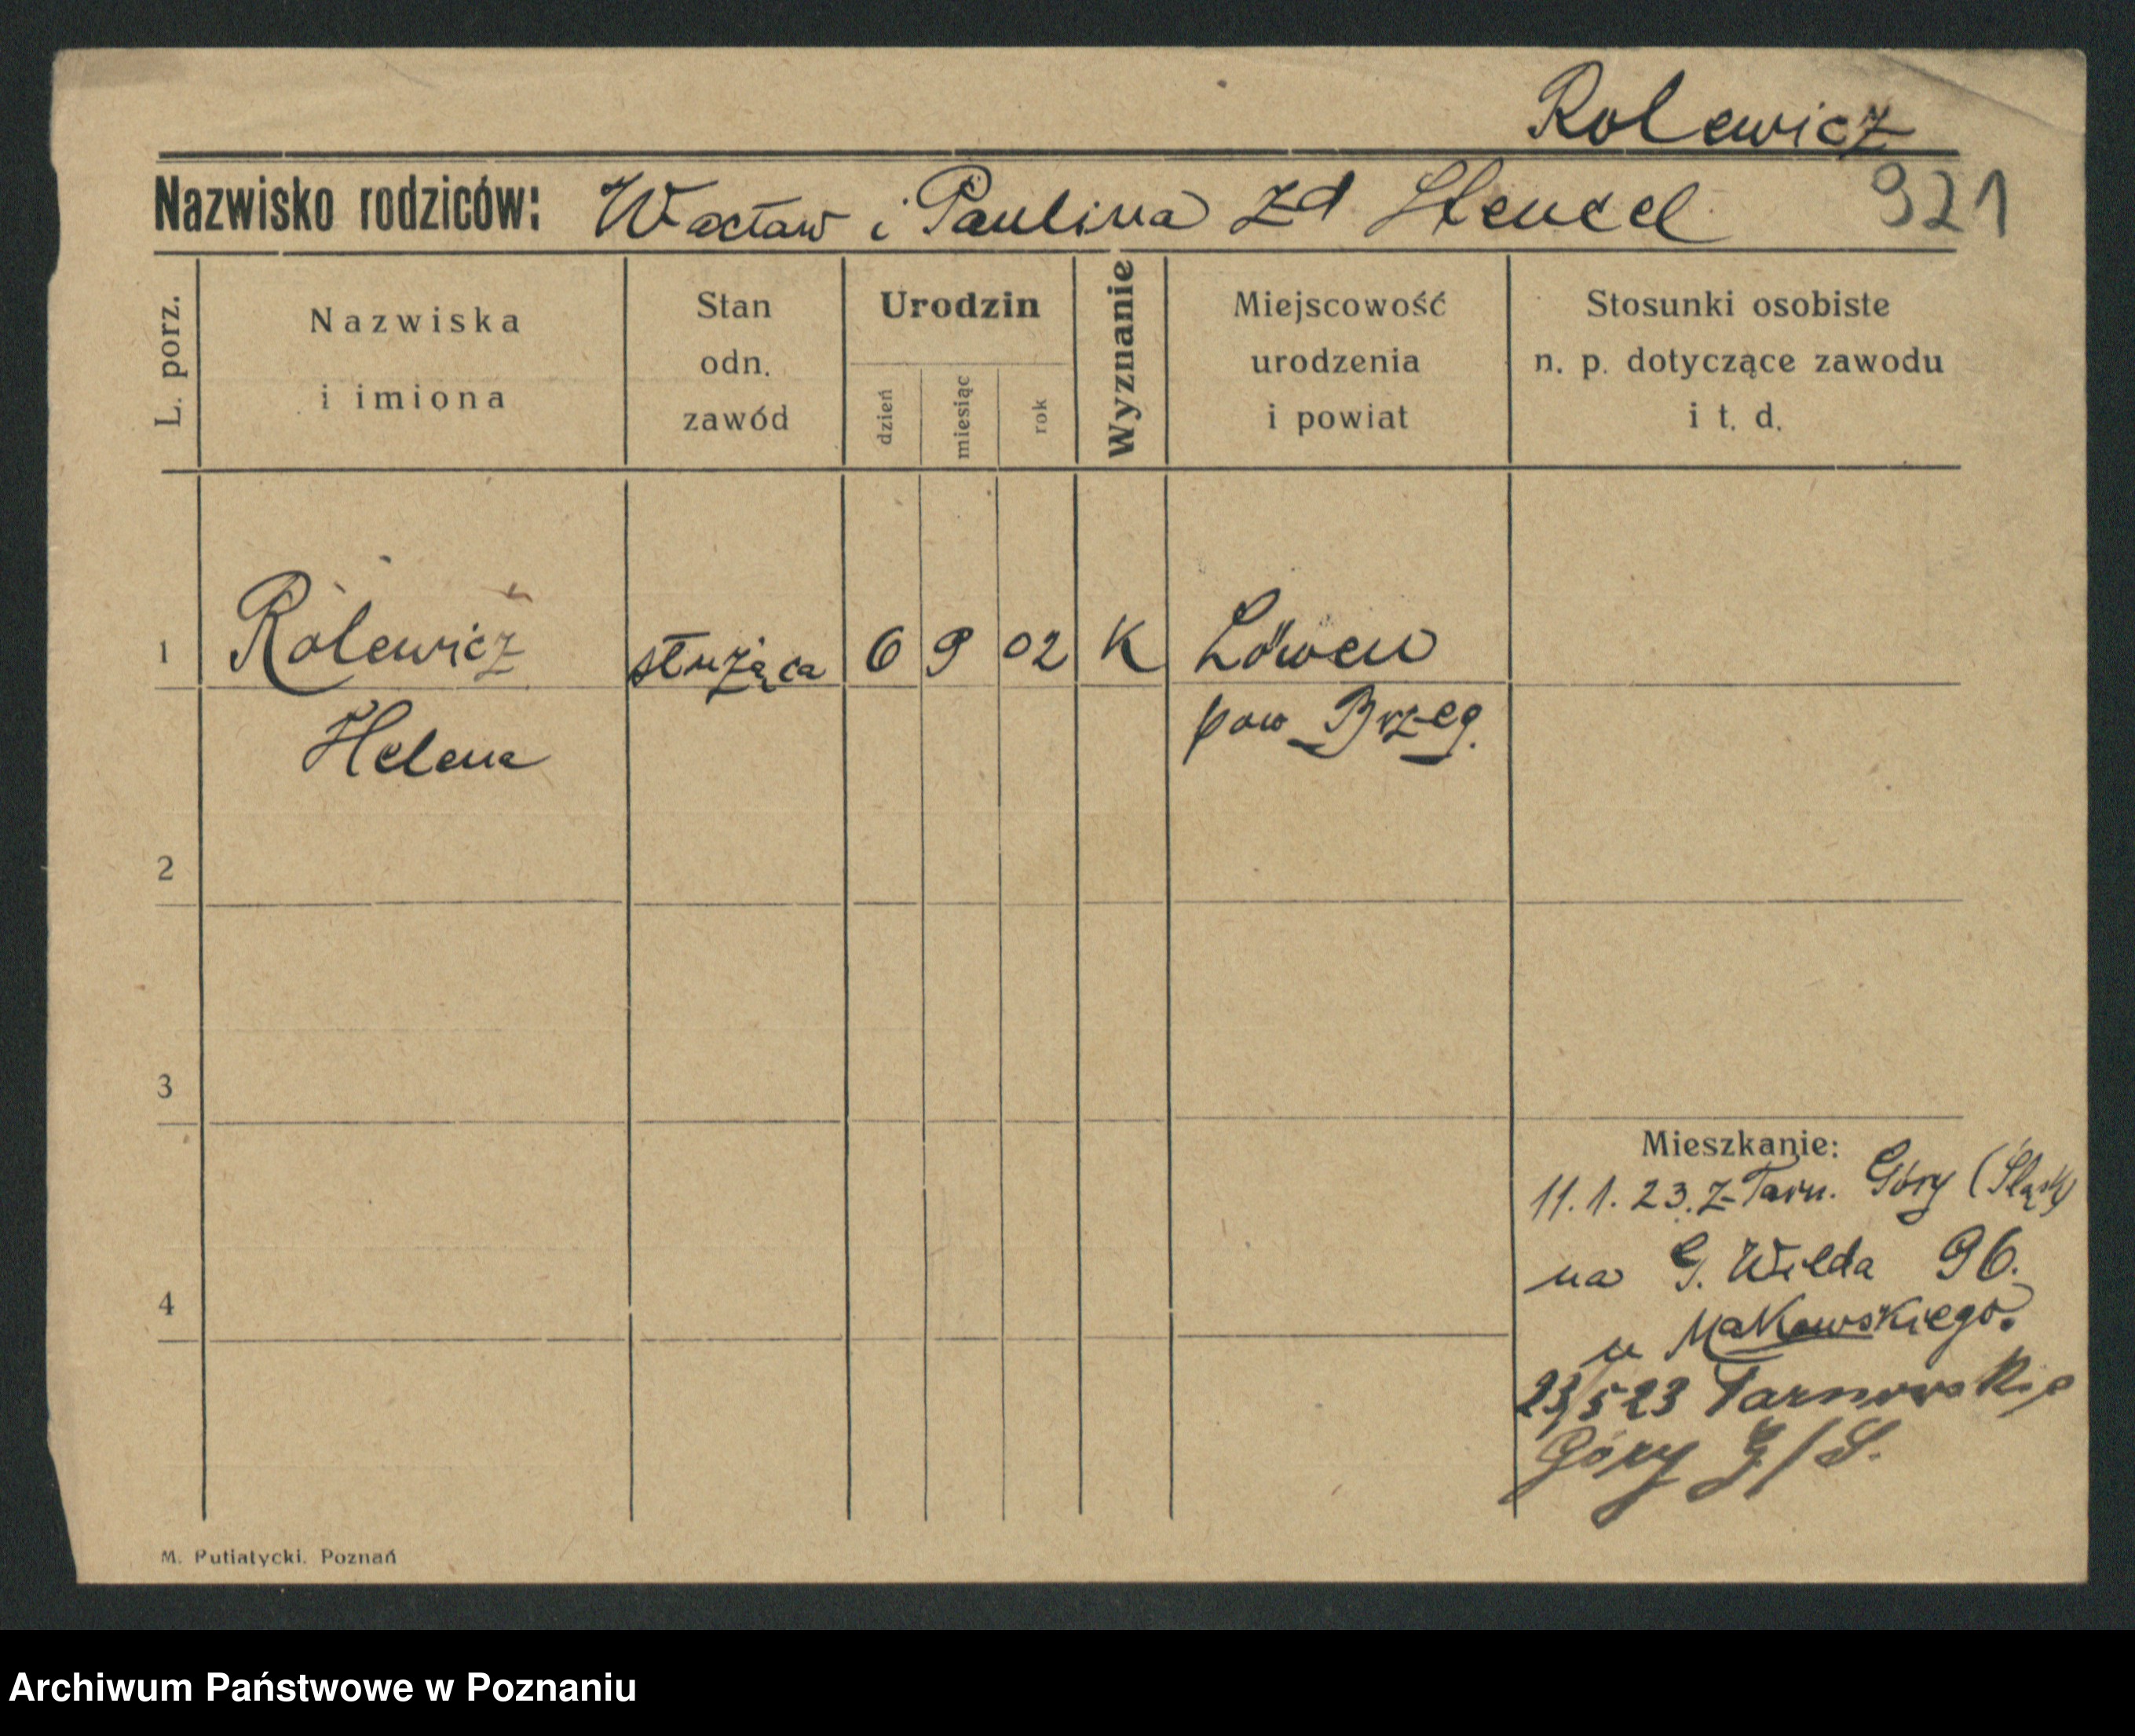 Rolewicz
Nazwisko rodziców: Wacław i Paulina zd Stencel 921
L. porz.
Nazwiska i imiona
Stan odn. zawód
Urodzin
dzień
miesiąc
rok
Wyznanie
Miejscowość urodzenia i powiat
Stosunki osobiste n. p. dotyczące zawodu i t. d.
1 Rolewicz służąca 6 9 02 K Löwen
Helena pow Brzeg.
2
3
Mieszkanie:
11.1.23. z Tarn. Góry (Śląsk)
na G. Wilda 96.
4
u Makowskiego.
23/5 23 Tarnowskie
Góry G/S.
M. Putiatycki. Poznań
Archiwum Państwowe w Poznaniu